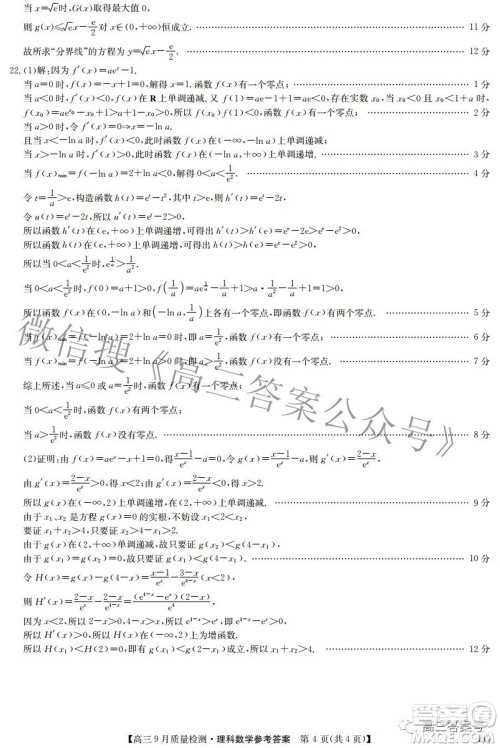 当 x=√e时,G(x)取得最大值 0.
则 g(x)≤√ex-e/2 对 x∈(0,+∞)恒成立. 11 分
故所求“分界线”的方程为 y=√ex-e/2. 12 分
22.(1)解:因为 f'(x)=aeˣ-1.
当 a=0 时,f(x)=-x+1=0,解得 x=1.函数 f(x)有一个零点; 1 分
当 a<0 时,f'(x)<0,f(x)在 R 上单调递减.又 f(1)=ae-1+1=ae<0,存在实数 x₀,当 x₀<1+a 时,
f(x₀)=ae^(x₀)-x₀+1>a-x₀+1>0,所以 f(x₀)f(1)<0,函数 f(x)有一个零点; 2 分
当 a>0 时,令 f'(x)=0⇒x=-ln a.
且当 x<-ln a 时,f'(x)<0,f(x)在(-∞,-ln a)上单调递减;
当 x>-ln a 时,f'(x)>0,f(x)在(-ln a,+∞)上单调递增. 3 分
当 f(x)min=f(-ln a)=2+ln a<0,解得 0<a<1/e². 4 分
令 t=1/a>e,构造函数 h(t)=eᵗ-t²,则 h'(t)=eᵗ-2t,
令 u(t)=eᵗ-2t,所以 u'(t)=eᵗ-2>0,
所以函数 h'(t)在(e,+∞)上单调递增,可得出 h'(t)>h'(e)=eᵉ-2e>0,
所以函数 h(t)在(e,+∞)上单调递增,可得出 h(t)>h(e)=eᵉ-e²>0.
所以当 0<a<1/e²时,e^(1/a)>1/a².
当 0<a<1/e²时,f(0)=a+1>0,f(1/a)=ae^(1/a)-1/a+1>a·1/a²-1/a+1=1>0,
所以函数 f(x)在(0,-ln a)和(-ln a,1/a)上各有一个零点. 5 分
当 f(x)min=f(-ln a)=2+ln a=0 时,即 a=1/e²时,函数 f(x)有一个零点; 6 分
当 f(x)min=f(-ln a)=2+ln a>0,即 a>1/e²时,函数 f(x)没有零点. 7 分
综上所述,当 a≤0 或 a=1/e²时,函数 f(x)有一个零点;
当 0<a<1/e²时,函数 f(x)有两个零点;
当 a>1/e²时,函数 f(x)没有零点. 8 分
(2)证明:由 f(x)=aeˣ-x+1=0,得 a=(x-1)/eˣ,令 g(x)=(x-1)/eˣ-a,则 g'(x)=(2-x)/eˣ,
由 g'(x)=(2-x)/eˣ>0,得 x<2;由 g'(x)<0,得 x>2.
所以 g(x)在(-∞,2)上单调递增,在(2,+∞)上单调递减. 9 分
由于 x₁、x₂ 是方程 g(x)=0 的实根,不妨设 x₁<2<x₂,
要证 x₁+x₂>4,只要证 x₂>4-x₁.
由于 g(x)在(2,+∞)单调递减,故只要证 g(x₂)<g(4-x₁),
由于 g(x₁)=g(x₂)=0,故只要证 g(x₁)<g(4-x₁). 10 分
令 H(x)=g(x)-g(4-x)=(x-1)/eˣ-(3-x)/e^(4-x),
则 H'(x)=(2-x)/eˣ-(2-x)/e^(4-x)=(e^(4-x)-eˣ)(2-x)/e⁴,
因为 x<2,所以 2-x>0,4-x>x,所以 e^(4-x)>eˣ,即 e^(4-x)-eˣ>0,
所以 H'(x)>0,所以 H(x)在(-∞,2)上为增函数.
所以 H(x₁)<H(2)=0,即有 g(x₁)<g(4-x₁)成立,所以 x₁+x₂>4. 12 分
微信搜《高三答案公众号》
【高三 9 月质量检测·理科数学参考答案 第 4 页(共 4 页)】
高三答案号